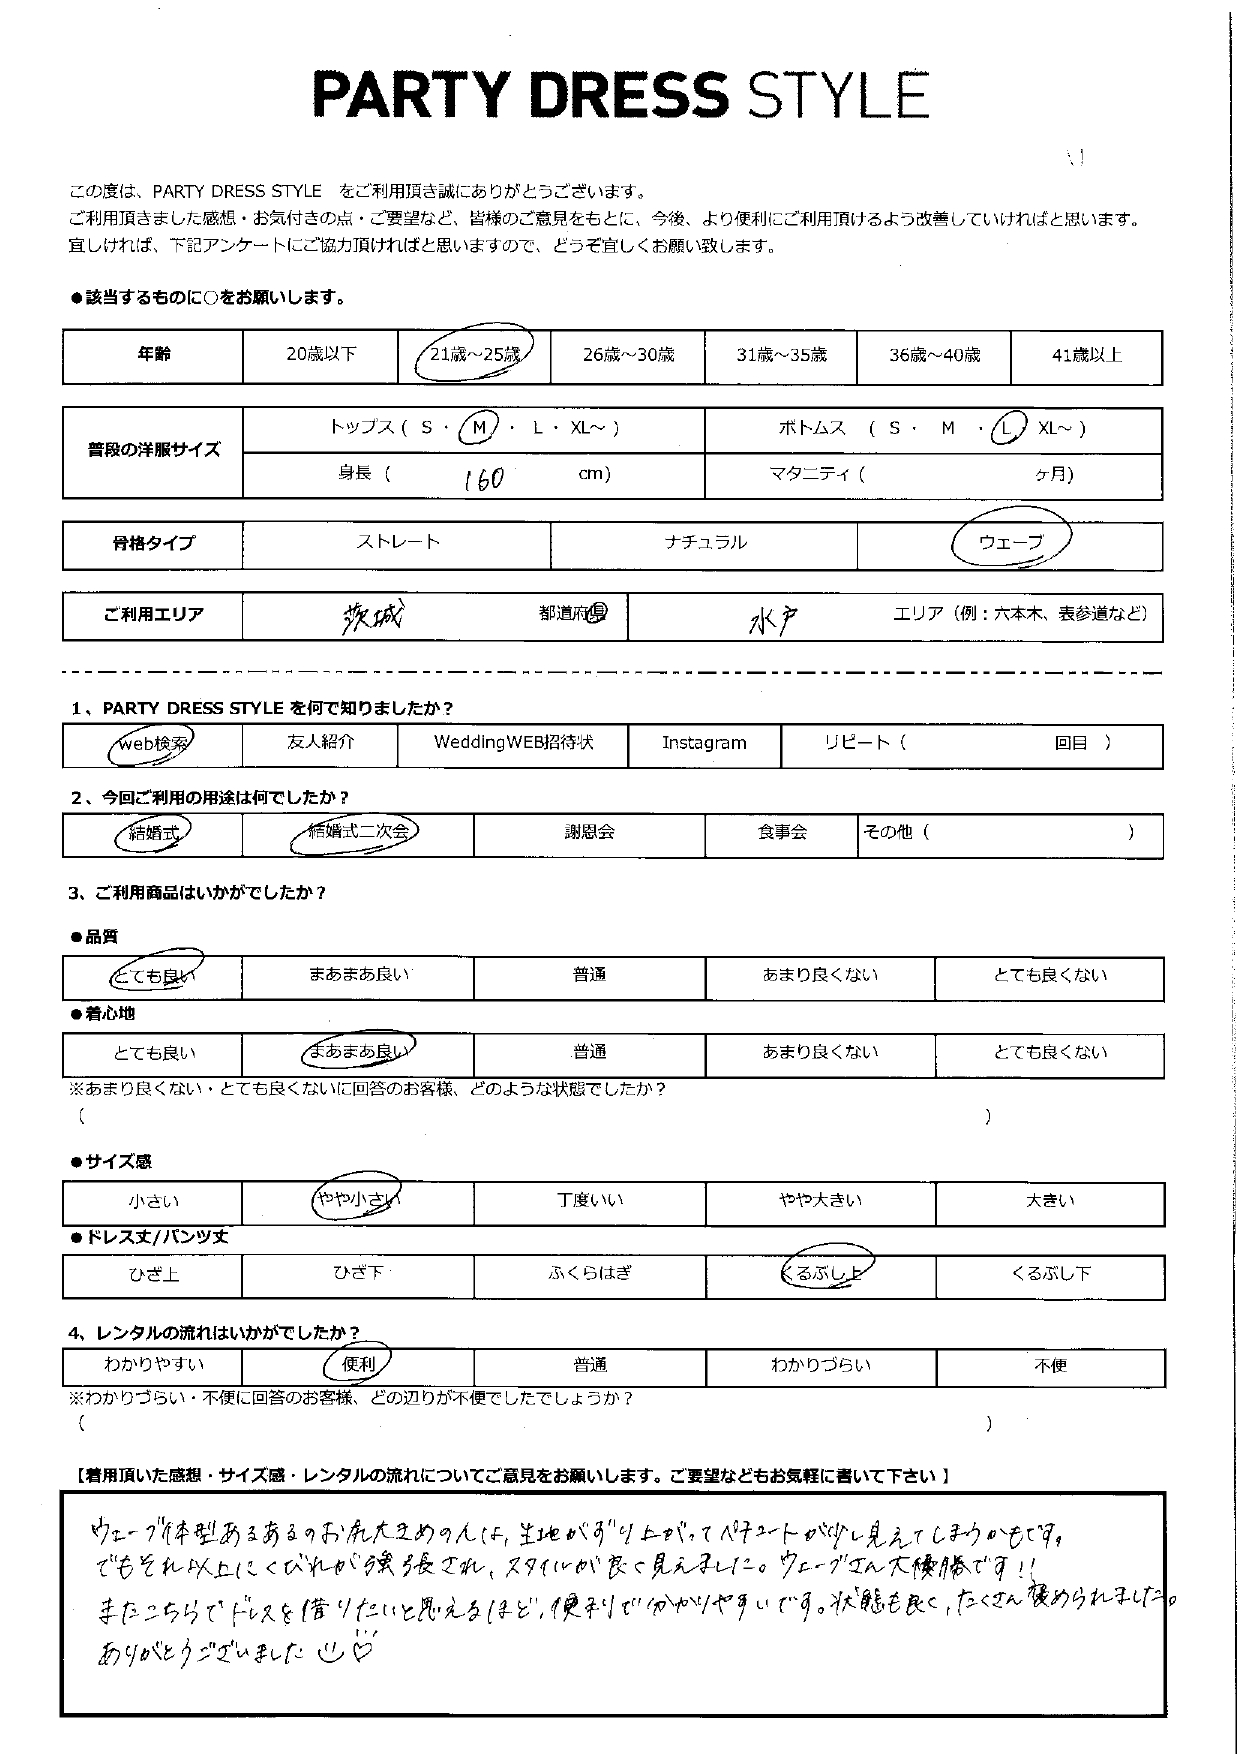 PARTY DRESS STYLE
この度は、PARTY DRESS STYLE をご利用頂き誠にありがとうございます。
ご利用頂きました感想・お気付きの点・ご要望など、皆様のご意見をもとに、今後、より便利にご利用頂けるよう改善していければと思います。
宜しければ、下記アンケートにご協力頂ければと思いますので、どうぞ宜しくお願い致します。
●該当するものに○をお願いします。
年齢 20歳以下 21歳～25歳 26歳～30歳 31歳～35歳 36歳～40歳 41歳以上
普段の洋服サイズ
トップス ( S ・ M ・ L ・ XL～ ) ボトムス ( S ・ M ・ L XL～ )
身長 ( 160 cm) マタニティ ( ヶ月)
骨格タイプ ストレート ナチュラル ウェーブ
ご利用エリア 茨城 都道府県 水戸 エリア（例：六本木、表参道など）
1、PARTY DRESS STYLE を何で知りましたか？
web検索 友人紹介 WeddingWEB招待状 Instagram リピート ( 回目 )
2、今回ご利用の用途は何でしたか？
結婚式 結婚式二次会 謝恩会 食事会 その他 ( )
3、ご利用商品はいかがでしたか？
●品質
とても良い まあまあ良い 普通 あまり良くない とても良くない
●着心地
とても良い まあまあ良い 普通 あまり良くない とても良くない
※あまり良くない・とても良くないに回答のお客様、どのような状態でしたか？
( )
●サイズ感
小さい やや小さい 丁度いい やや大きい 大きい
●ドレス丈/パンツ丈
ひざ上 ひざ下 ふくらはぎ くるぶし上 くるぶし下
4、レンタルの流れはいかがでしたか？
わかりやすい 便利 普通 わかりづらい 不便
※わかりづらい・不便に回答のお客様、どの辺りが不便でしたでしょうか？
( )
【着用頂いた感想・サイズ感・レンタルの流れについてご意見をお願いします。ご要望などもお気軽に書いて下さい】
ウェーブ体型あるあるのお尻大きめの人は、生地がずり上がってペチコートが少し見えてしまうかもです。
でもそれ以上にくびれが強調され、スタイルが良く見えました。ウェーブさん大優勝です!!
またこちらでドレスを借りたいと思えるほど、便利で分かりやすいです。状態も良く、たくさん褒められました。
ありがとうございました